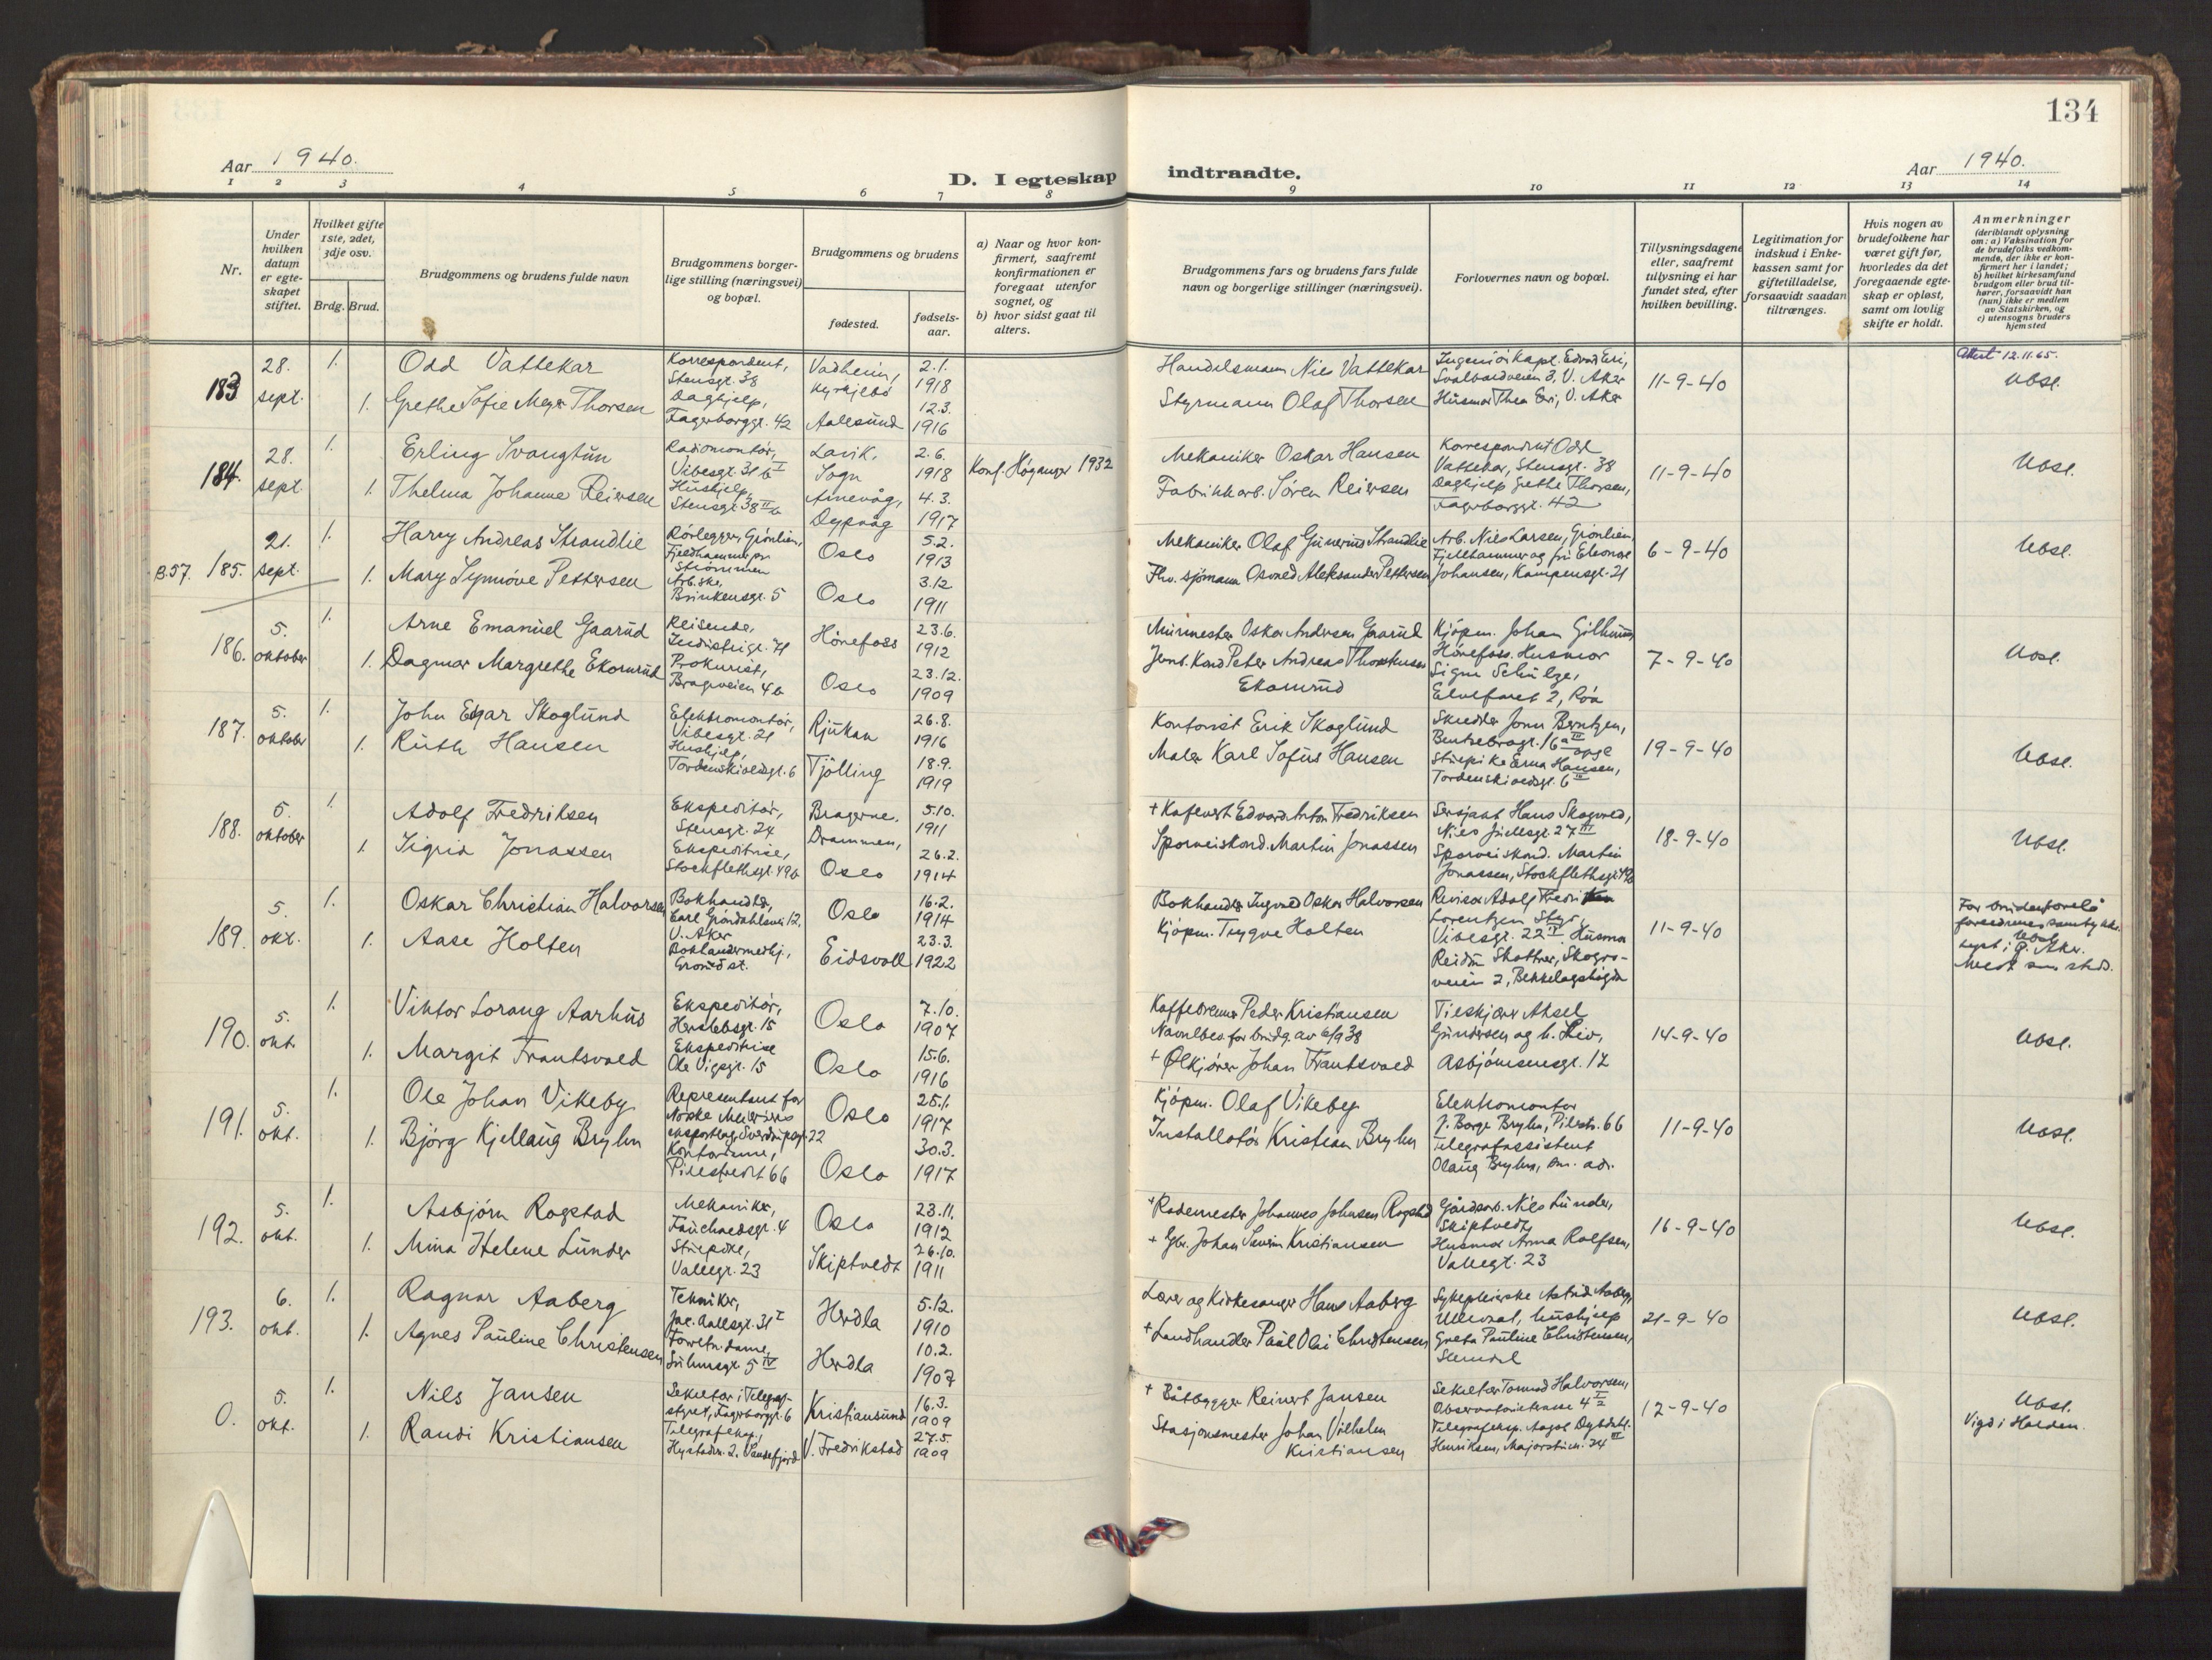 134
Aar 1940.
D. I egteskap indtraadte.
Aar 1940.
1 2 3 4 5 6 7 8 9 10 11 12 13 14
Nr.
Under hvilken datum er egteskapet stiftet.
Hvilket gifte 1ste, 2det, 3dje osv.
Brdg. Brud.
Brudgommens og brudens fulde navn
Brudgommens borgerlige stilling (næringsvei) og bopæl.
Brudgommens og brudens
fødested.
fødselsaar.
a) Naar og hvor konfirmert, saafremt konfirmationen er foregaat utenfor sognet, og
b) hvor sidst gaat til alters.
Brudgommens fars og brudens fars fulde navn og borgerlige stillinger (næringsvei).
Forlovernes navn og bopæl.
Tillysningsdagene eller, saafremt tillysning ei har fundet sted, efter hvilken bevilling.
Legitimation for indskud i Enkekassen samt for giftetilladelse, forsaavidt saadan tiltrænges.
Hvis nogen av brudefolkene har været gift før, hvorledes da det foregaaende egteskap er opløst, samt om lovlig skifte er holdt.
Anmerkninger
(deriblandt oplysning om: a) Vaksination for de brudefolks vedkommende, der ikke er konfirmert her i landet;
b) hvilket kirkesamfund brudgom eller brud tilhører, forsaavidt han (hun) ikke er medlem av Statskirken, og
c) utensogns bruders hjemsted
183
28. sept.
1.
Odd Vattekar
Korrespondent, Stensgt. 38
Vadheim, Kyrkjebø
2.1. 1918
Handelsmann Nils Vattekar
Svalbardveien 3, V. Aker
11-9-40
Attest 12.11.65.
Ubsl.
1.
Grethe Sofie Meyer Thorsen
Daghjelp, Fagerborggt. 42
Aalesund
12.3. 1916
Styrmann Olaf Thorsen
Husmor Thea Eri, V. Aker
184.
28. sept.
1.
Erling Svangtun
Radiomontør, Vibesgt. 31 b I
Lavik, Sogn
2.6. 1918
Konf. Høganger 1932
Mekaniker Oskar Hansen
Korrespondent Odd Vattekar, Stensgt. 38
11-9-40
Ubsl.
1.
Thelma Johanne Reiersen
Hushjelp, Stensgt. 38 II b
Dypvåg
4.3. 1917
Fabrikkarb. Søren Reiersen
Daghjelp Grethe Thorsen, Fagerborggt. 42
B.57. 185.
21. sept.
1.
Harry Andreas Strandlie
Rørlegger, Grønlien, Fjellhammer pr Strømmen
Oslo
5.2. 1913
Mekaniker Olaf Gunerius Strandlie
Arb. Nils Larsen, Grønlien, Fjellhammer og fru Eleonore
6-9-40
Ubsl.
1.
Mary Synnøve Pettersen
Arb.ske, Brinkensgt. 5
Oslo
3.12 1911
Fhv. sjømann Osvald Aleksander Pettersen
Johansen, Kampensgt. 21
186.
5. oktober
1.
Arne Emanuel Gaarud
Reisende, Industrigt. 71
Hønefoss
23.6. 1912
Murmester Oskar Andersen Gaarud
Kjøpm. Johan Hønefoss. Husmor
7-9-40
Ubsl.
1.
Dagmar Margrethe Ekornrud
Prokurist, Brageveien 4 b
Oslo
23.12. 1909
Jernb. Kond Peter Andreas Ekornrud
Signe Schulze, 2, Røa
187.
5. oktober
1.
John Edgar Skoglund
Elektromontør, Vibesgt. 21
Rjukan
26.8. 1916
Kontorist Erik Skoglund
Skredder John Berntzen, Bentsebrogt. 16 a III oppg
19-9-40
Ubsl.
1.
Ruth Hansen
Hushjelp, Tordenskioldsgt. 6
Tjølling
18.9. 1919
Maler Karl Sofus Hansen
Stuepike Erna Hansen, Tordenskioldsgt. 6 III
188.
5. oktober
1.
Adolf Fredriksen
Ekspeditør, Stensgt. 24
Bragerne, Drammen,
5.10. 1911
+ Kafevert Edvard Anton Fredriksen
Sersjant Hans Skogvold, Niels Juelsgt. 27 III
18-9-40
Ubsl.
1.
Sigrid Jonassen
Ekspeditrise, Stockflethsgt. 49 b
Oslo
26.2. 1914
Sporveiskond. Martin Jonassen
Sporveiskond. Martin Jonassen, Stockflethsgt. 49 b
189.
5. okt.
1.
Oskar Christian Halvorsen
Bokhandler, Carl Grøndahlsvei 12, V. Aker
Oslo
16.2. 1914
Bokhandler Ingvald Oskar Halvorsen
Revisor Adolf Lorentzen Vibesgt. 22 IV. Husmor
11-9-40
For brudens
Ubsl.
lyst i Ø. Aker.
1.
Aase Holten
Bokhandlermedhj., Grorud st.
Eidsvoll
23.3. 1922
Kjøpm. Trygve Holten
Reidun veien 2, Bekkelagshøgda
190.
5. okt.
1.
Viktor Lorang Aarhus
Ekspeditør, Herslebsgt. 15
Oslo
7.10. 1907
Kaffebrenner Peder Kristiansen
Navnebev. for brudg. av 6/9 38
Aksel Gundersen og h. Liv,
14-9-40
Ubsl.
1.
Margit Frantsvold
Ekspeditrise Ole Vigsgt. 15
Oslo
15.6. 1916
+ Ølkjører Johan Frantsvold
Asbjørnsensgt. 12
191.
5. okt.
1.
Ole Johan Vikeby
Representant for Norske Meieriers eksportlag, Sverdrupsgt. 22
Oslo
25.1. 1917
Kjøpm. Olaf Vikeby
Elektromontør J. Borge Bryhn, Pilestr. 66
11-9-40
Ubsl.
1.
Bjørg Kjellaug Bryhn
Kontorinne, Pilestredet 66
Oslo
30.3. 1917
Installatør Kristian Bryhn
Telegrafassistent Olaug Bryhn, sm. adr.
192.
5. okt.
1.
Asbjørn Rogstad
Mekaniker, Fauchaldsgt. 4
Oslo
23.11. 1912
+ Rodemester Johannes Johnsen Rogstad
Gårdsarb. Nils Lunder, Skiptvedt,
16-9-40
Ubsl.
1.
Mina Helene Lunder
Stuepike, Vallegt. 23
Skiptvedt
26.10. 1911
+ Gbr. Johan Severin Kristiansen
Husmor Anna Rolfsen, Vallegt. 23
193.
6. okt.
1.
Ragnar Aaberg
Tekniker, Jac. Aallsgt. 31 I
Herdla
5.12. 1910
Lærer og Kirkesanger Hans Aaberg
Sykepleierske Astrid Aaberg, Ullevaal, hushjelp
21-9-40
Ubsl.
1.
Agnes Pauline Christensen
Forretn.dame, Suhmsgt. 5 IV
Herdla
10.2. 1907
+ Landhandler Paul Olai Christensen
Greta Pauline Christensen,
0.
5. okt.
1.
Nils Jansen
Sekretær i Telegrafstyret, Fagerborggt. 6
Kristiansund
16.3. 1909
+ Båtbygger Reinert Jansen
Sekretær Tormod Halvorsen, Observatoriegate 4 I
12-9-40
Ubsl.
Vigd i Halden.
1.
Randi Kristiansen
Telegrafeksp., Hystadvn. 2. Sandefjord
V. Fredrikstad
27.5. 1909
Stasjonsmester Johan Vilhelm Kristiansen
Telegrafeksp. Aagot Henriksen, Majorstuvn. 24 III